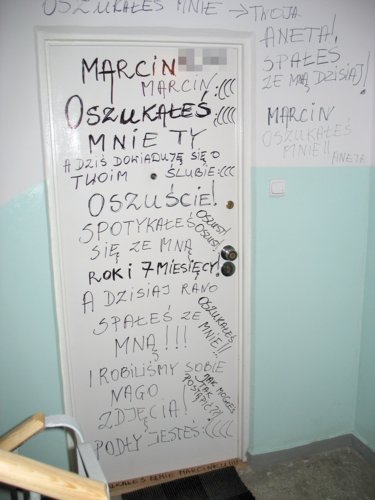 OSZUKAŁEŚ MNIE → TWOJA
ANETA!
SPAŁEŚ
ZE MNĄ DZISIAJ!
MARCIN
OSZUKAŁEŚ
MNIE!! ANETA
MARCIN
MARCIN:(((
OSZUKAŁEŚ:((((
MNIE TY
A DZIŚ DOWIADUJĘ SIĘ O
TWOIM ŚLUBIE:(((
OSZUŚCIE!
SPOTYKAŁEŚ
SIĘ ZE MNĄ
OSZUST!
OSZUST!
ROK I 7 MIESIĘCY!
A DZISIAJ RANO
SPAŁEŚ ZE
MNĄ!!!
OSZUKAŁEŚ
MNIE!!
I ROBILIŚMY SOBIE
NAGO
ZDJĘCIA!
JAK MOGŁEŚ
TAK
POSTĄPIĆ?!
PODŁY JESTEŚ:((((
OSZUKAŁEŚ MNIE MARCINIE!!!